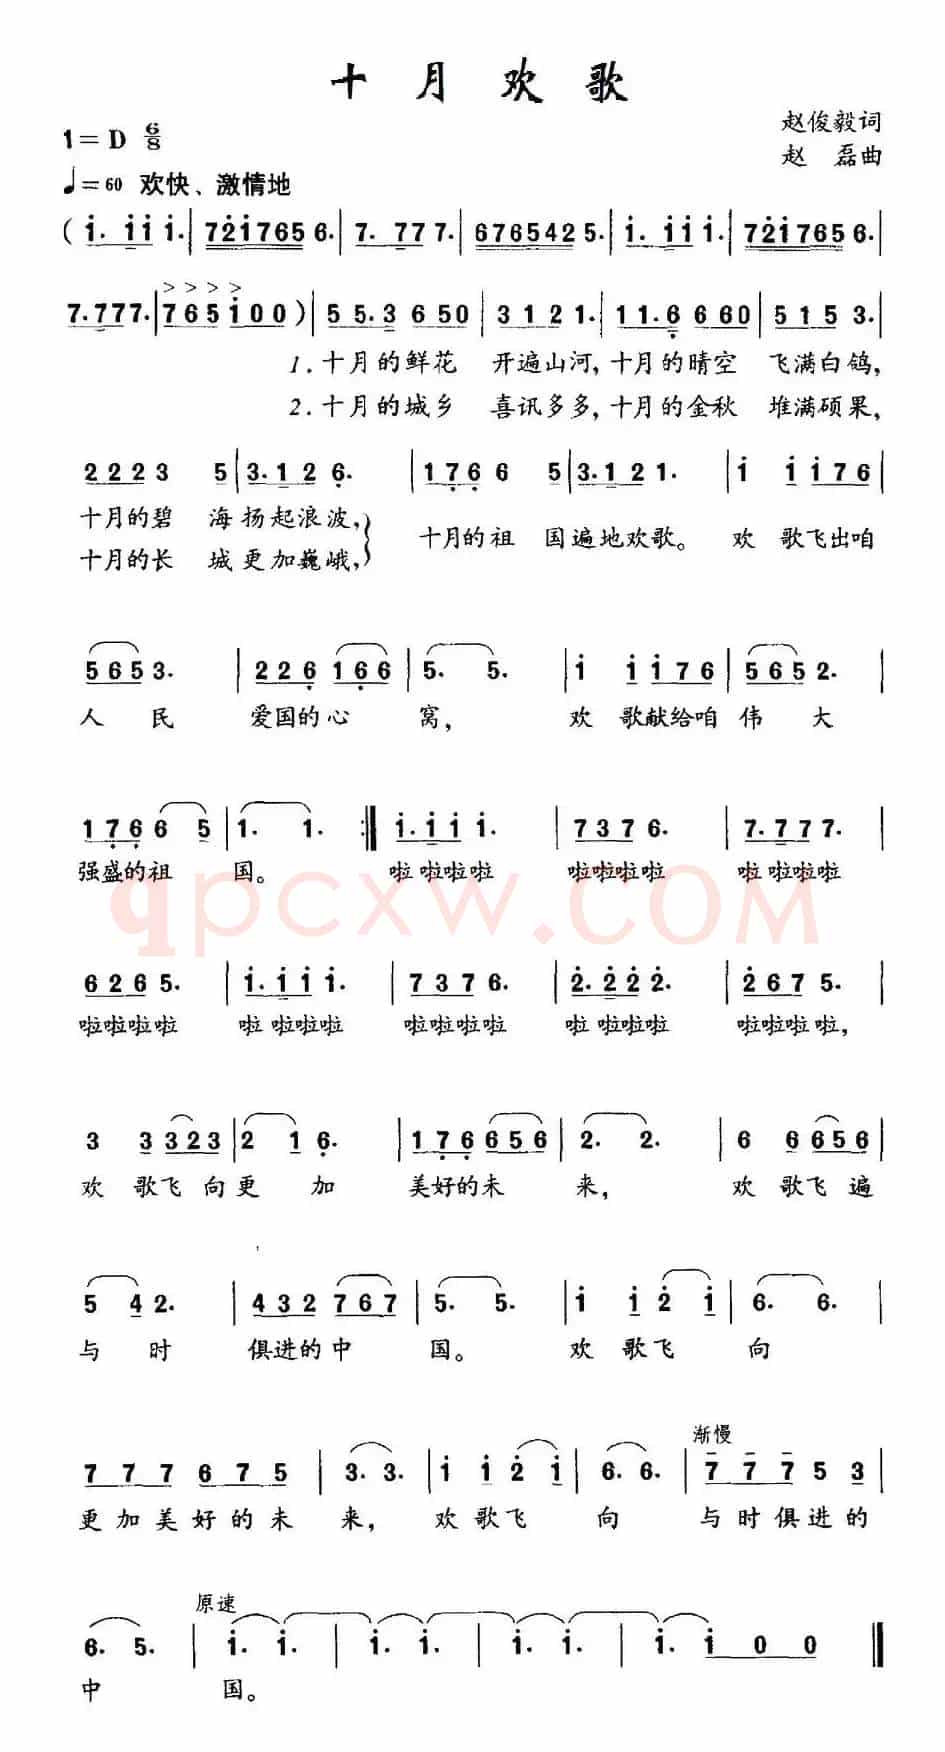 十月欢歌
1=D 6/8
赵俊毅词
赵 磊曲
♩=60 欢快、激情地
(i. i i i. | 7 2̇ i 7 6 5 6. | 7. 7 7 7. | 6 7 6 5 4 2 5. | i. i i i. | 7 2̇ i 7 6 5 6. |
7. 7 7 7. | 7 6 5 i 0 0) | 5 5. 3 6 5 0 | 3 1 2 1. | 1 1. 6̣ 6 6 0 | 5 1 5 3. |
1.十月的鲜花 开遍山河,十月的晴空 飞满白鸽,
2.十月的城乡 喜讯多多,十月的金秋 堆满硕果,
2 2 2 3 5 | 3. 1 2 6̣. | 1 7̣ 6̣ 6 5 | 3. 1 2 1. | i i i 7 6 |
十月的碧 海扬起浪波,
十月的祖 国遍地欢歌。 欢 歌飞出咱
十月的长 城更加巍峨,
5 6 5 3. | 2 2 6̣ 1 6̣ 6̣ | 5. 5. | i i i 7 6 | 5 6 5 2. |
人 民 爱国的心 窝, 欢 歌献给咱 伟 大
1 7̣ 6̣ 6 5 | 1. 1. :‖ i. i i i. | 7 3 7 6. | 7. 7 7 7. |
强盛的祖 国。 啦 啦啦啦 啦啦啦啦 啦 啦啦啦
qpcxw.COM
6 2 6 5. | i. i i i. | 7 3 7 6. | 2̇. 2̇ 2̇ 2̇. | 2̇ 6 7 5. |
啦啦啦啦 啦 啦啦啦 啦啦啦啦 啦 啦啦啦 啦啦啦啦,
3 3 3 2 3 | 2 1 6̣. | 1 7̣ 6̣ 6 5 6 | 2. 2. | 6 6 6 5 6 |
欢 歌飞 向更 加 美好的未 来, 欢 歌飞 遍
5 4 2. | 4 3 2 7 6 7 | 5. 5. | i i 2̇ i | 6. 6. |
与 时 俱进的中 国。 欢 歌飞 向
渐慢
7 7 7 6 7 5 | 3. 3. | i i 2̇ i | 6. 6. | 7 7 7 5 3 |
更加美好的未 来, 欢 歌飞 向 与时俱进的
原速
6. 5. | i. i. | i. i. | i. i. | i. i 0 0 ‖
中 国。